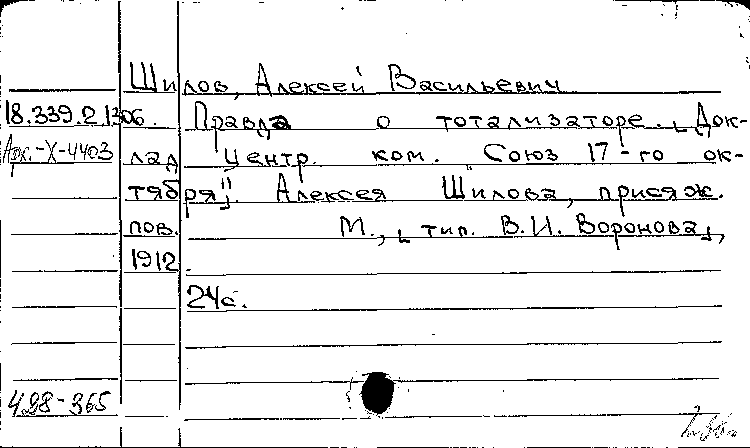 Шилов, Алексей Васильевич
18.339.2.1306. Правда о тотализаторе. [Док-
Арх.-X-4403 лад центр. ком. "Союз 17-го ок-
тября"]. Алексея Шилова, присяж.
пов. М., [тип. В.И. Воронова],
1912.
24с.
428-365